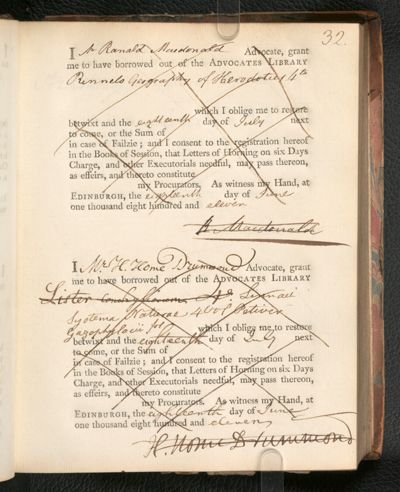 32.
I R Ranald Macdonald Advocate, grant
me to have borrowed out of the ADVOCATES LIBRARY
Rennels Geography of Herodotus 4to
which I oblige me to restore
betwixt and the eighteenth day of July next
to come, or the Sum of
in case of Failzie; and I consent to the registration hereof
in the Books of Session, that Letters of Horning on six Days
Charge, and other Executorials needful, may pass thereon,
as effeirs, and thereto constitute
my Procurators. As witness my Hand, at
EDINBURGH, the eighteenth day of June
one thousand eight hundred and eleven
R. Macdonald
I Mr H. Home Drummond Advocate, grant
me to have borrowed out of the ADVOCATES LIBRARY
Lister 4o Linnaei
Systema Naturae 4 vol Petiver
Gazophylacii which I oblige me to restore
betwixt and the eighteenth day of July next
to come, or the Sum of
in case of Failzie; and I consent to the registration hereof
in the Books of Session, that Letters of Horning on six Days
Charge, and other Executorials needful, may pass thereon,
as effeirs, and thereto constitute
my Procurators. As witness my Hand, at
EDINBURGH, the eighteenth day of June
one thousand eight hundred and eleven
H. Home Drummond